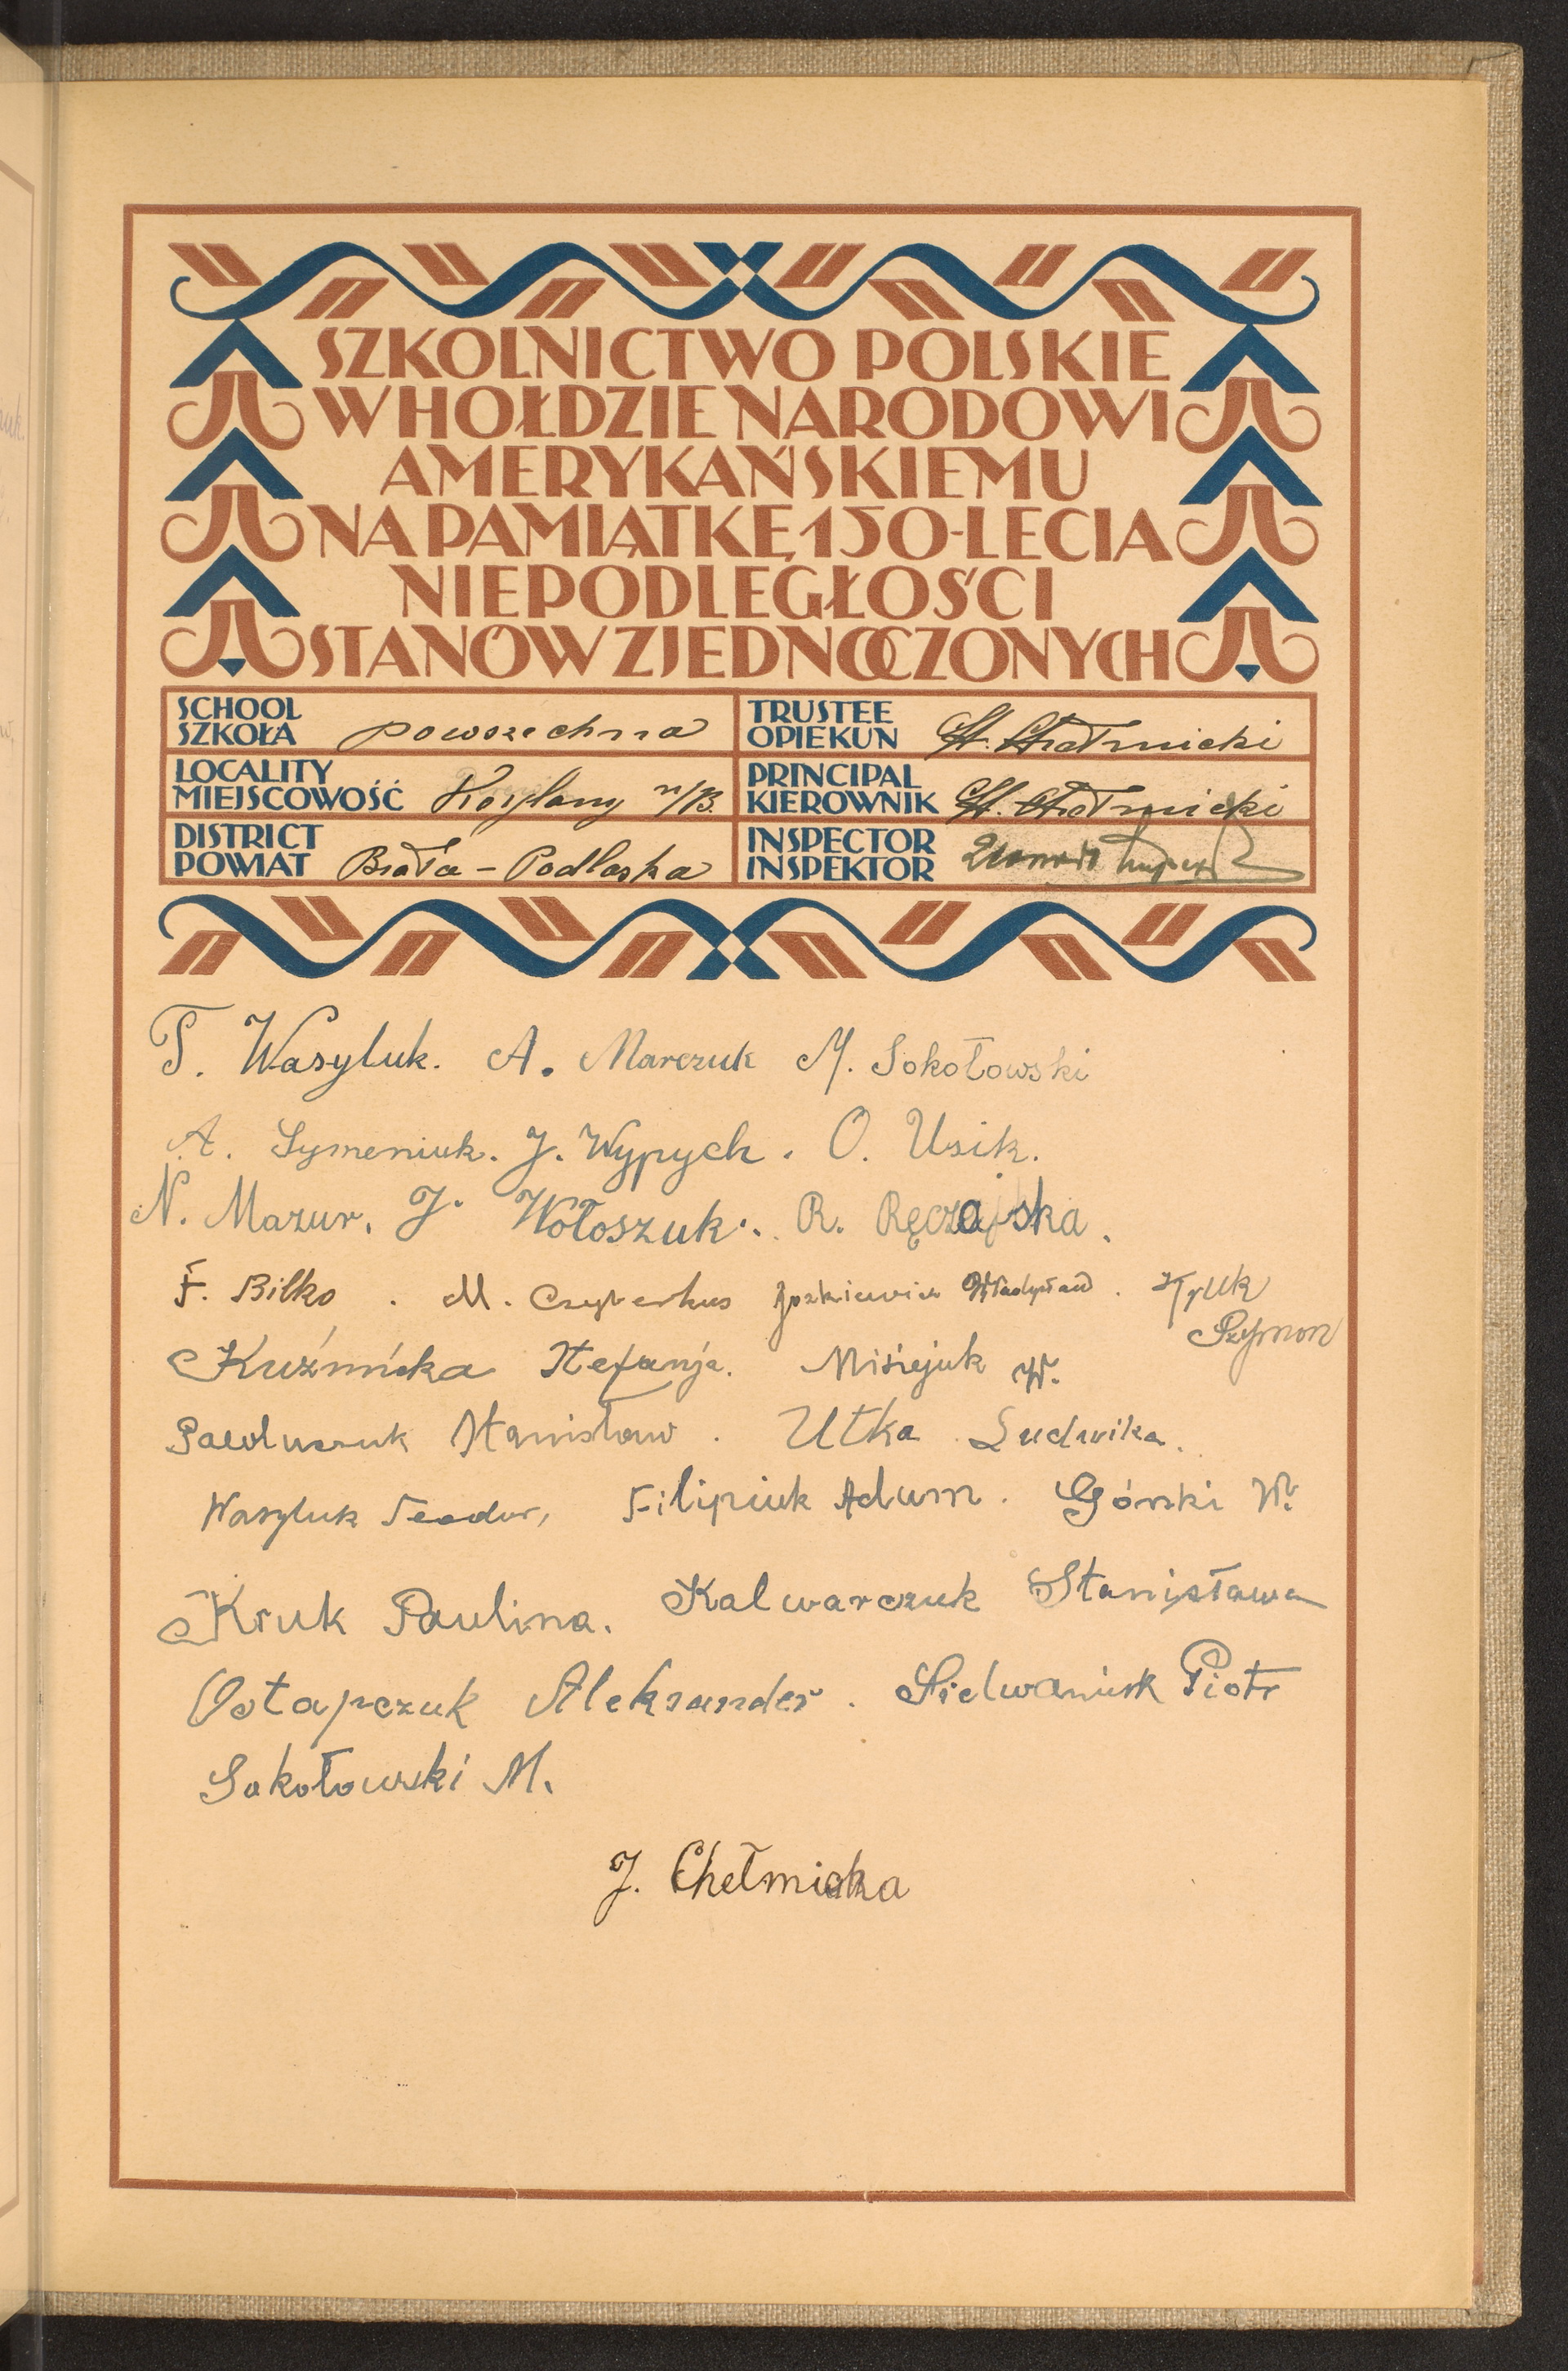 SZKOLNICTWO POLSKIE
W HOŁDZIE NARODOWI
AMERYKAŃSKIEMU
NA PAMIĄTKĘ 150-LECIA
NIEPODLEGŁOŚCI
STANÓW ZJEDNOCZONYCH
SCHOOL
SZKOŁA powszechna
TRUSTEE
OPIEKUN St.
LOCALITY
MIEJSCOWOŚĆ n/B.
PRINCIPAL
KIEROWNIK St.
DISTRICT
POWIAT Biała - Podlaska
INSPECTOR
INSPEKTOR
T. Wasyluk. A. Marczuk M. Sokołowski
A. Symeniuk. J. Wypych. O. Usik.
N. Mazur. J. Wołoszuk. R. Ręczajska.
F. Bilko. M. Władysław. Hryuk
Szymon
Kuźmicka Stefanja. Misiejuk W.
Pawluszuk Stanisław. Utka Ludwika.
Wasyluk Teodor, Filipiuk Adam. Górski W.
Kruk Paulina. Kalwarczuk Stanisława
Ostapczuk Aleksander. Sielwaniuk Piotr
Sokołowski M.
J. Chełmicka